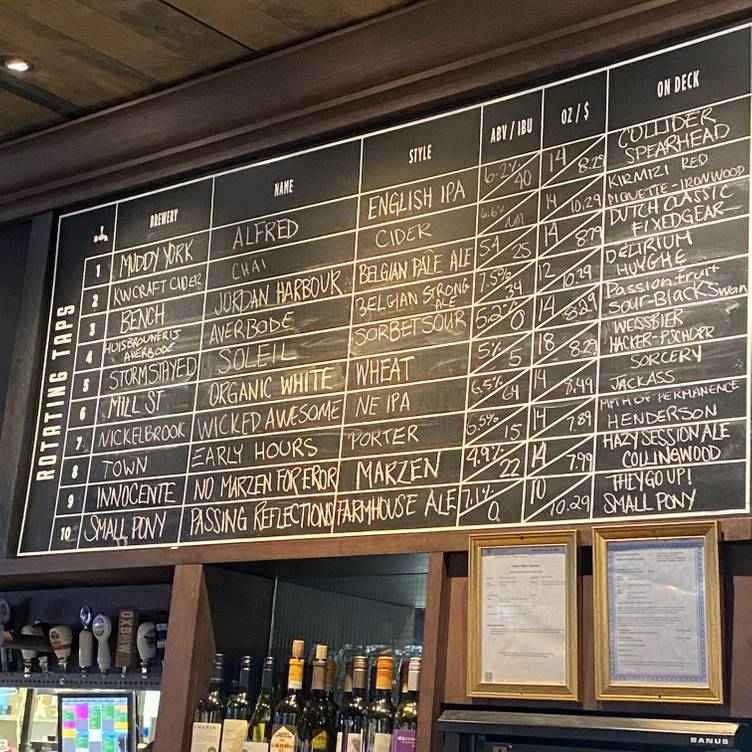 BREWERY NAME STYLE ABV / IBU OZ / $ ON DECK
ROTATING TAPS
1 MUDDY YORK ALFRED ENGLISH IPA 6.2% 40 14 8.29 COLLIDER
SPEARHEAD
2 KW CRAFT CIDER CHAI CIDER 6.6% N/A 14 10.29 KIRMIZI RED
PIQUETTE-IRONWOOD
3 BENCH JORDAN HARBOUR BELGIAN PALE ALE 5.4 25 14 8.79 DUTCH CLASSIC
FIXEDGEAR
4 HUISBROUWERIJ AVERBODE BELGIAN STRONG 7.5% 34 12 10.29 DELIRIUM
AVERBODE ALE HUYGHE
5 STORMSTAYED SOLEIL SORBET SOUR 5.2% 0 14 8.29 Passion fruit
Sour-BlackSwan
6 MILL ST ORGANIC WHITE WHEAT 5% 5 18 8.29 WEISSBIER
HACKER-PSCHORR
7 NICKELBROOK WICKED AWESOME NE IPA 6.5% 64 14 8.49 SORCERY
JACKASS
8 TOWN EARLY HOURS PORTER 6.5% 15 14 7.89 MYTH OF PERMANENCE
HENDERSON
9 INNOCENTE NO MARZEN FOR EROR MARZEN 4.9% 22 14 7.99 HAZY SESSION ALE
COLLINGWOOD
10 SMALL PONY PASSING REFLECTIONS FARMHOUSE ALE 7.1% 0 10 10.29 THEY GO UP!
SMALL PONY
OXBOW
SANUS